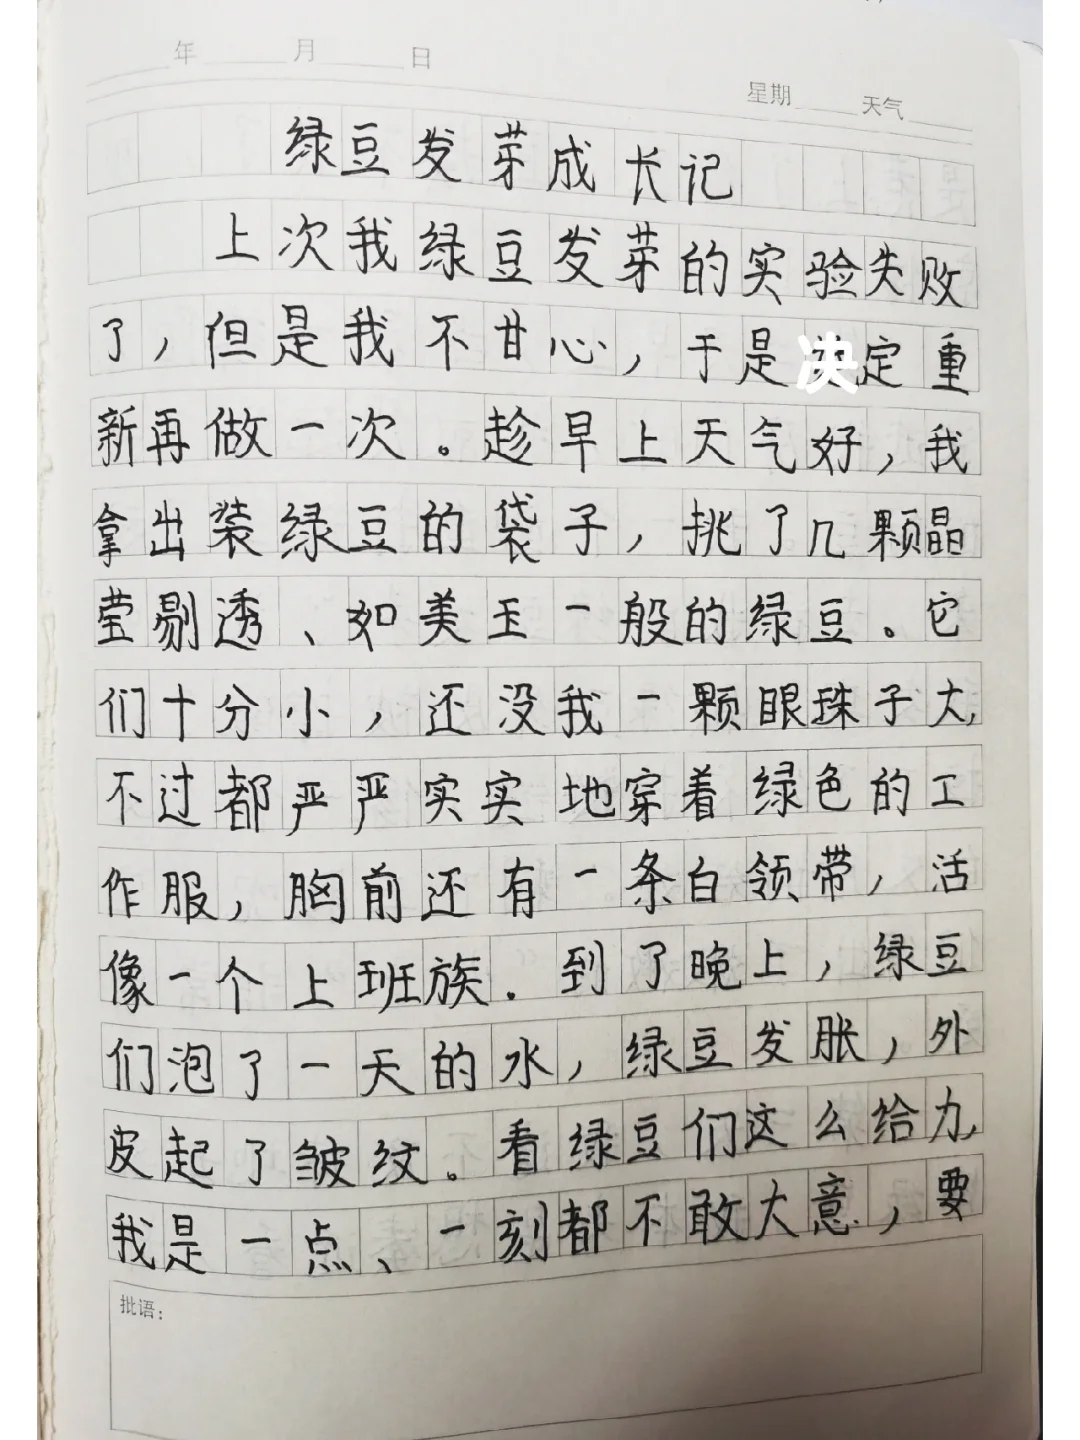 年 月 日
星期 天气
绿豆发芽成长记
上次我绿豆发芽的实验失败
了，但是我不甘心，于是决定重
新再做一次。趁早上天气好，我
拿出装绿豆的袋子，挑了几颗晶
莹剔透、如美玉一般的绿豆。它
们十分小，还没我一颗眼珠子大，
不过都严严实实地穿着绿色的工
作服，胸前还有一条白领带，活
像一个上班族。到了晚上，绿豆
们泡了一天的水，绿豆发胀，外
皮起了皱纹。看绿豆们这么给力，
我是一点、一刻都不敢大意，要
批语：